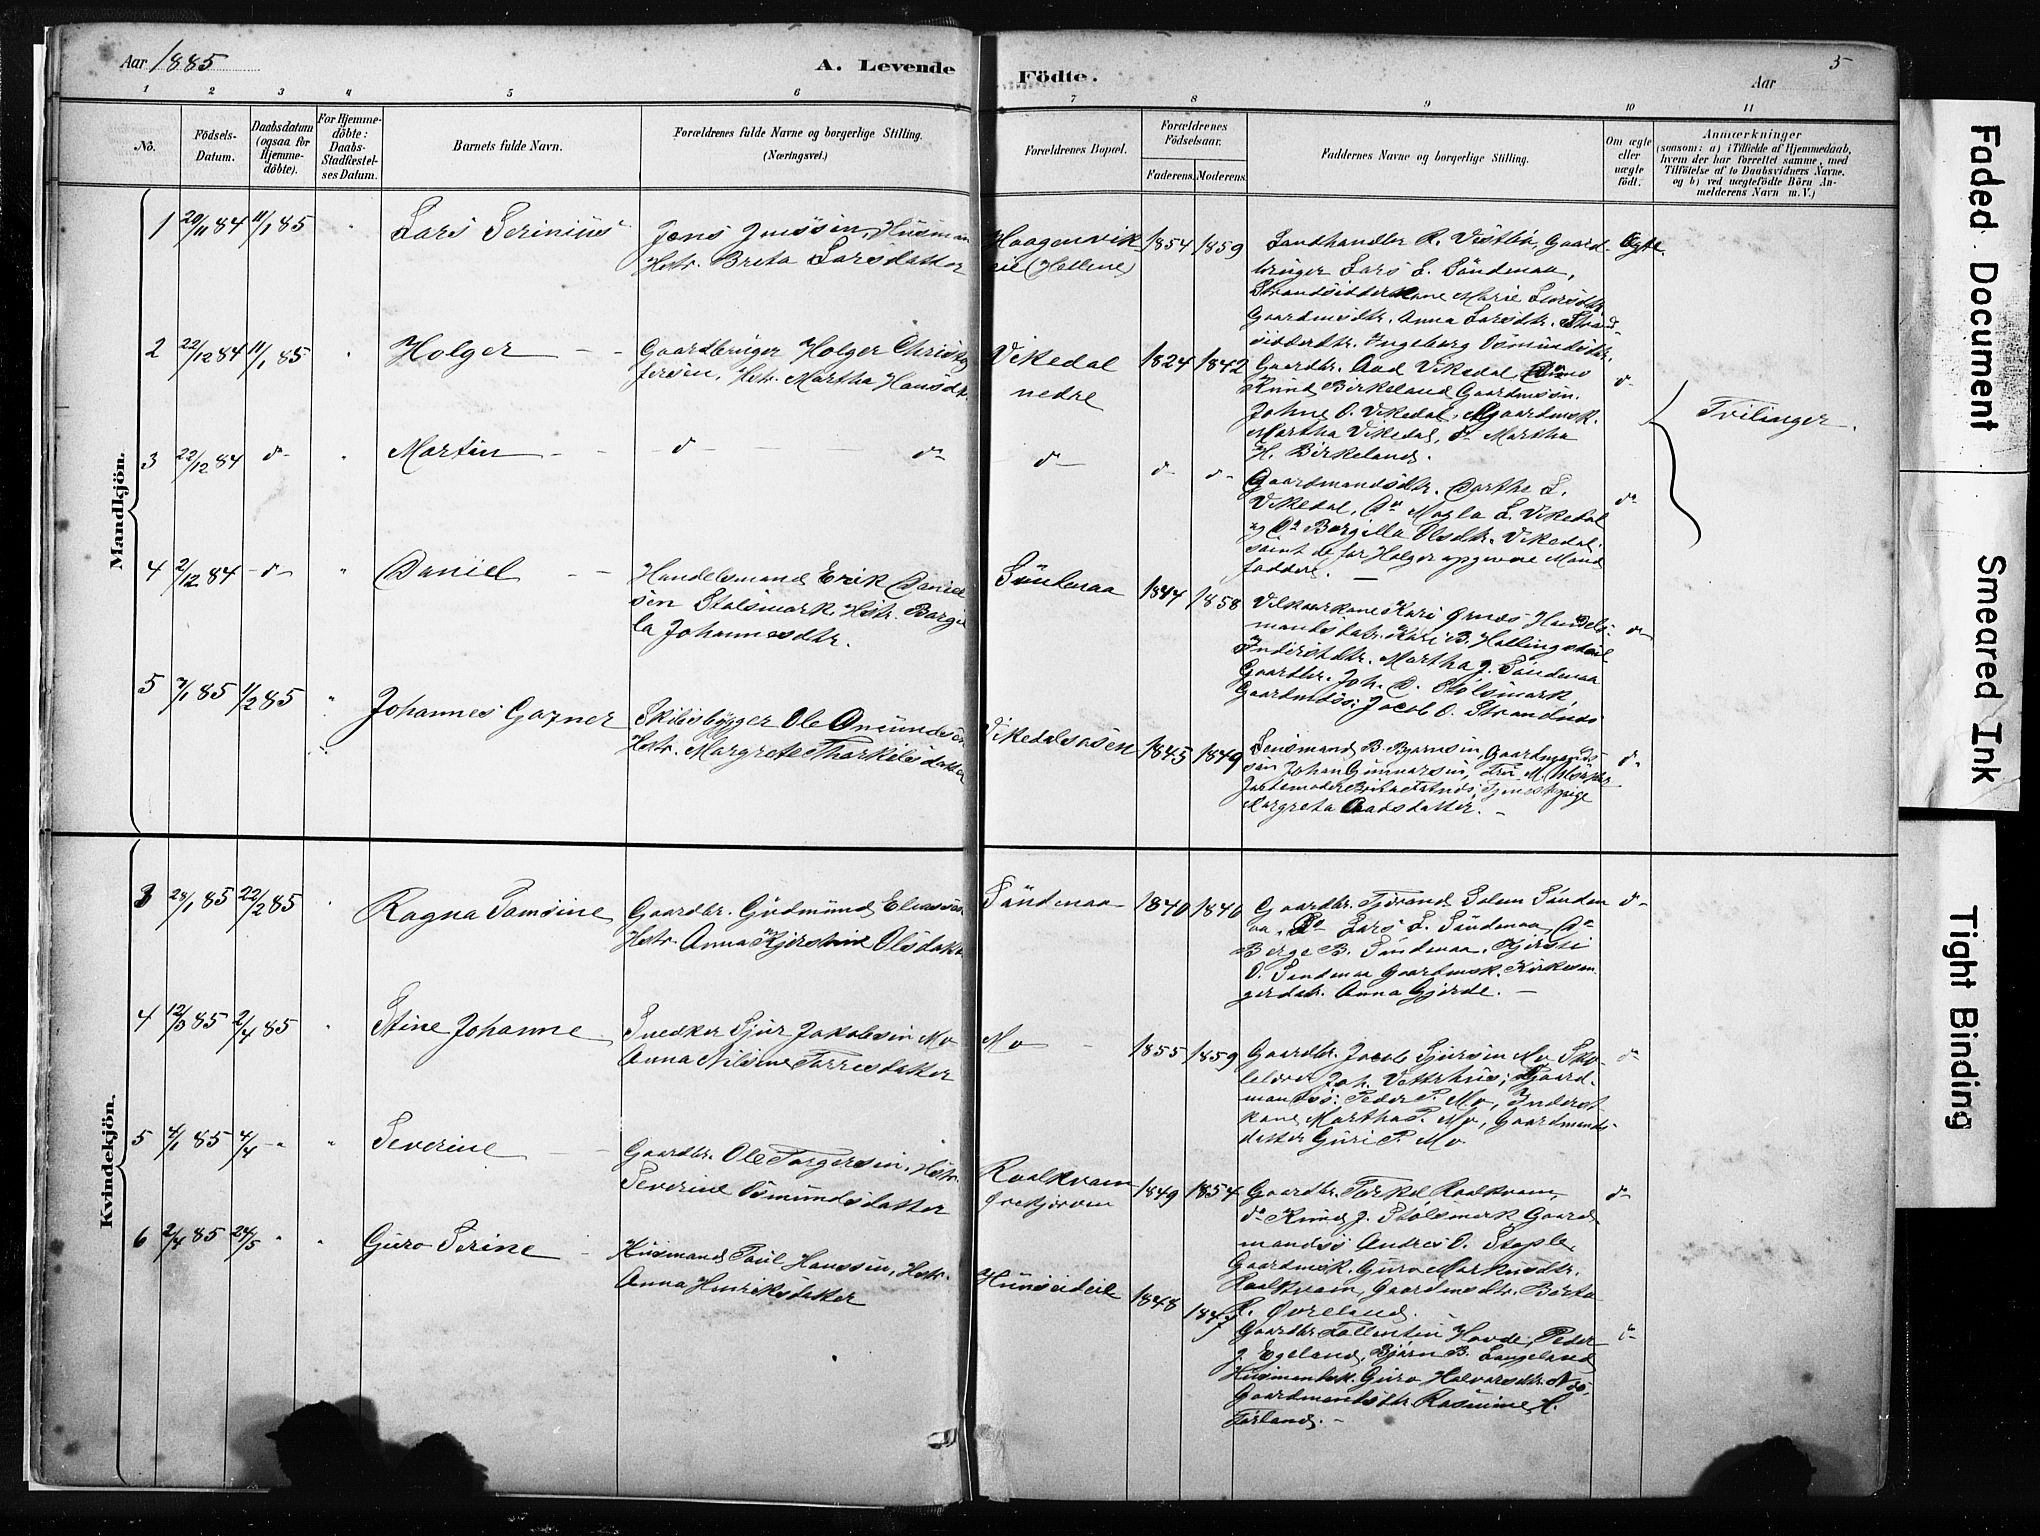 Aar 1885
A. Levende
Födte.
Aar
5
1 2 3 4 5 6 7 8 9 10 11
No.
Födsels-
Datum.
Daabsdatum
(ogsaa for
Hjemme-
döbte).
For Hjemme-
döbte:
Daabs-
Stadfæstel-
ses Datum.
Barnets fulde Navn.
Forældrenes fulde Navne og borgerlige Stilling.
(Næringsvei.)
Forældrenes Bopæl.
Forældrenes
Födselsaar.
Faderens. Moderens.
Faddernes Navne og borgerlige Stilling.
Om ægte
eller
uægte
født.
Anmærkninger
(saasom: a) i Tilfælde af Hjemmedaab,
hvem der har forrettet samme, med
Tilföielse af to Daabsvidners Navne.
og b) ved uægtefödte Börn An-
melderens Navn m. V.)
Mandkjön.
1 20/11 84 11/1 85 Lars Serinius
Jens Jenssen, Husman
Hstr. Breta Larsdatter
Haagenvik
eie (Hellene)
1854 1859
Landhandler R. Vestbö, Gaard-
bruger Lars L. Söndenaa,
Strandsidderkone Marie Larsdtr
Gaardmdtr. Anna Larsdtr. Strand-
sidderdtr. Ingeborg Osmundsdtr.
Ægte.
2 22/12 84 11/1 85 Holger
Gaardbruger Holger Christof
fersen, Hstr. Martha Hansdtr.
Vikedal
nedre
1824 1842
Gaardbr. Aad Vikedal, Do
Knud Birkeland Gaardmsön.
Johne O. Vikedal, Gaardmk.
Martha Vikedal, do Martha
H. Birkeland.
do
Tvilinger.
3 22/12 84 do Martin do do
do do do
Gaardmandsdtr. Dorthe L.
Vikedal, Do Magla L. Vikedal
og Do Bergilla Olsdtr. Vikedal.
samt de for Holger opgivne Mand
faddere.
do
4 2/12 84 do Daniel
Handelsmand Erik Daniel
sen Stölsmark, Hstr. Bergil
la Johannesdtr.
Söndenaa
1844 1858
Vilkaarkone Kari Ørnes Handels-
mandsdatr. Kari B. Hallingsdeie
Inderstdtr. Martha J. Söndenaa
Gaardbr. Joh. D. Stölsmark,
Gaardmdss: Jacob O. Strandnes
do
5 7/1 85 1/2 85 Johannes Gagner
Skibsbygger Ole Omundsen
Hstr. Margrete Tharkilsdatter
Vikedalsosen
1845 1849
Lensmand B. Bjørnsen, Gaardmands
sön Johan Gunnarsen, Fru M.
Jordemoder Berta Fatnes, Tjenestepige
Margreta Aadsdatter.
do
Kvindekjön.
3 28/1 85 22/2 85 Ragna Tomine
Gaardbr. Gudmund Eliassen
Hstr. Anna Kjerstine Olsdatter
Söndenaa
1840 1840
Gaardbr. Tjerand Solem Sönden
aa, Do Lars L. Söndenaa, Do
Berge B. Söndenaa, Kjersti
O. Söndenaa Gaardmk. Kirkesan
gerdatr. Anna Gjerde.
do
4 12/3 85 2/4 85 Stine Johanne
Snedker Sjur Jakobsen Mo
Anna Nilsine Torresdatter
Mo
1855 1859
Gaardbr. Jacob Sjursen Mo Sko
lelærer Joh. Vetrhus; Gaard-
mandss: Peder P. Mo, Inderst
kone Martha P. Mo, Gaardmands-
datter Guri P. Mo
do
5 4/1 85 4/4 Severine
Gaardbr. Ole Torgersen, Hstr.
Severine Osmundsdatter
Raalkvam
Øvebjørven
1849 1854
Gaardbr. Torkel Raalkvam,
do Knud J. Stölsmark Gaard
mandss Andres O. Stople,
Gaardmk. Guro Markusdtr.
Raalkvam, Gaardmdtr. Berta
R. Øvreland.
do
6 2/4 85 24/5 Guro Serine
Husmand Paul Hanssen, Hstr.
Anna Henriksdatter
Hunseideie
1848 1847
Gaardbr. Tollentin Hovde, Peder
J. Egeland, Bjørn B. Langeland
Husmandsk. Guro Halvorsdtr. Næs,
Gaardmandsdtr Rasmine H.
Førland.
do
Faded Document
Smeared Ink
Tight Binding